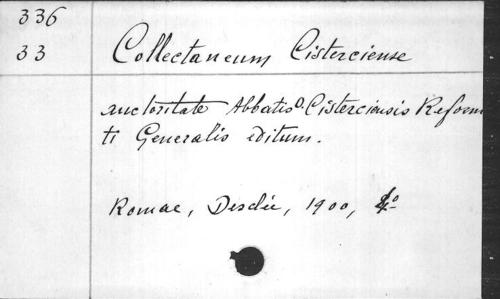 336
33
Collectaneum Cisterciense
auctoritate Abbatis O. Cisterciensis Reform
ti Generalis editum.
Romae, Desclée, 1900,